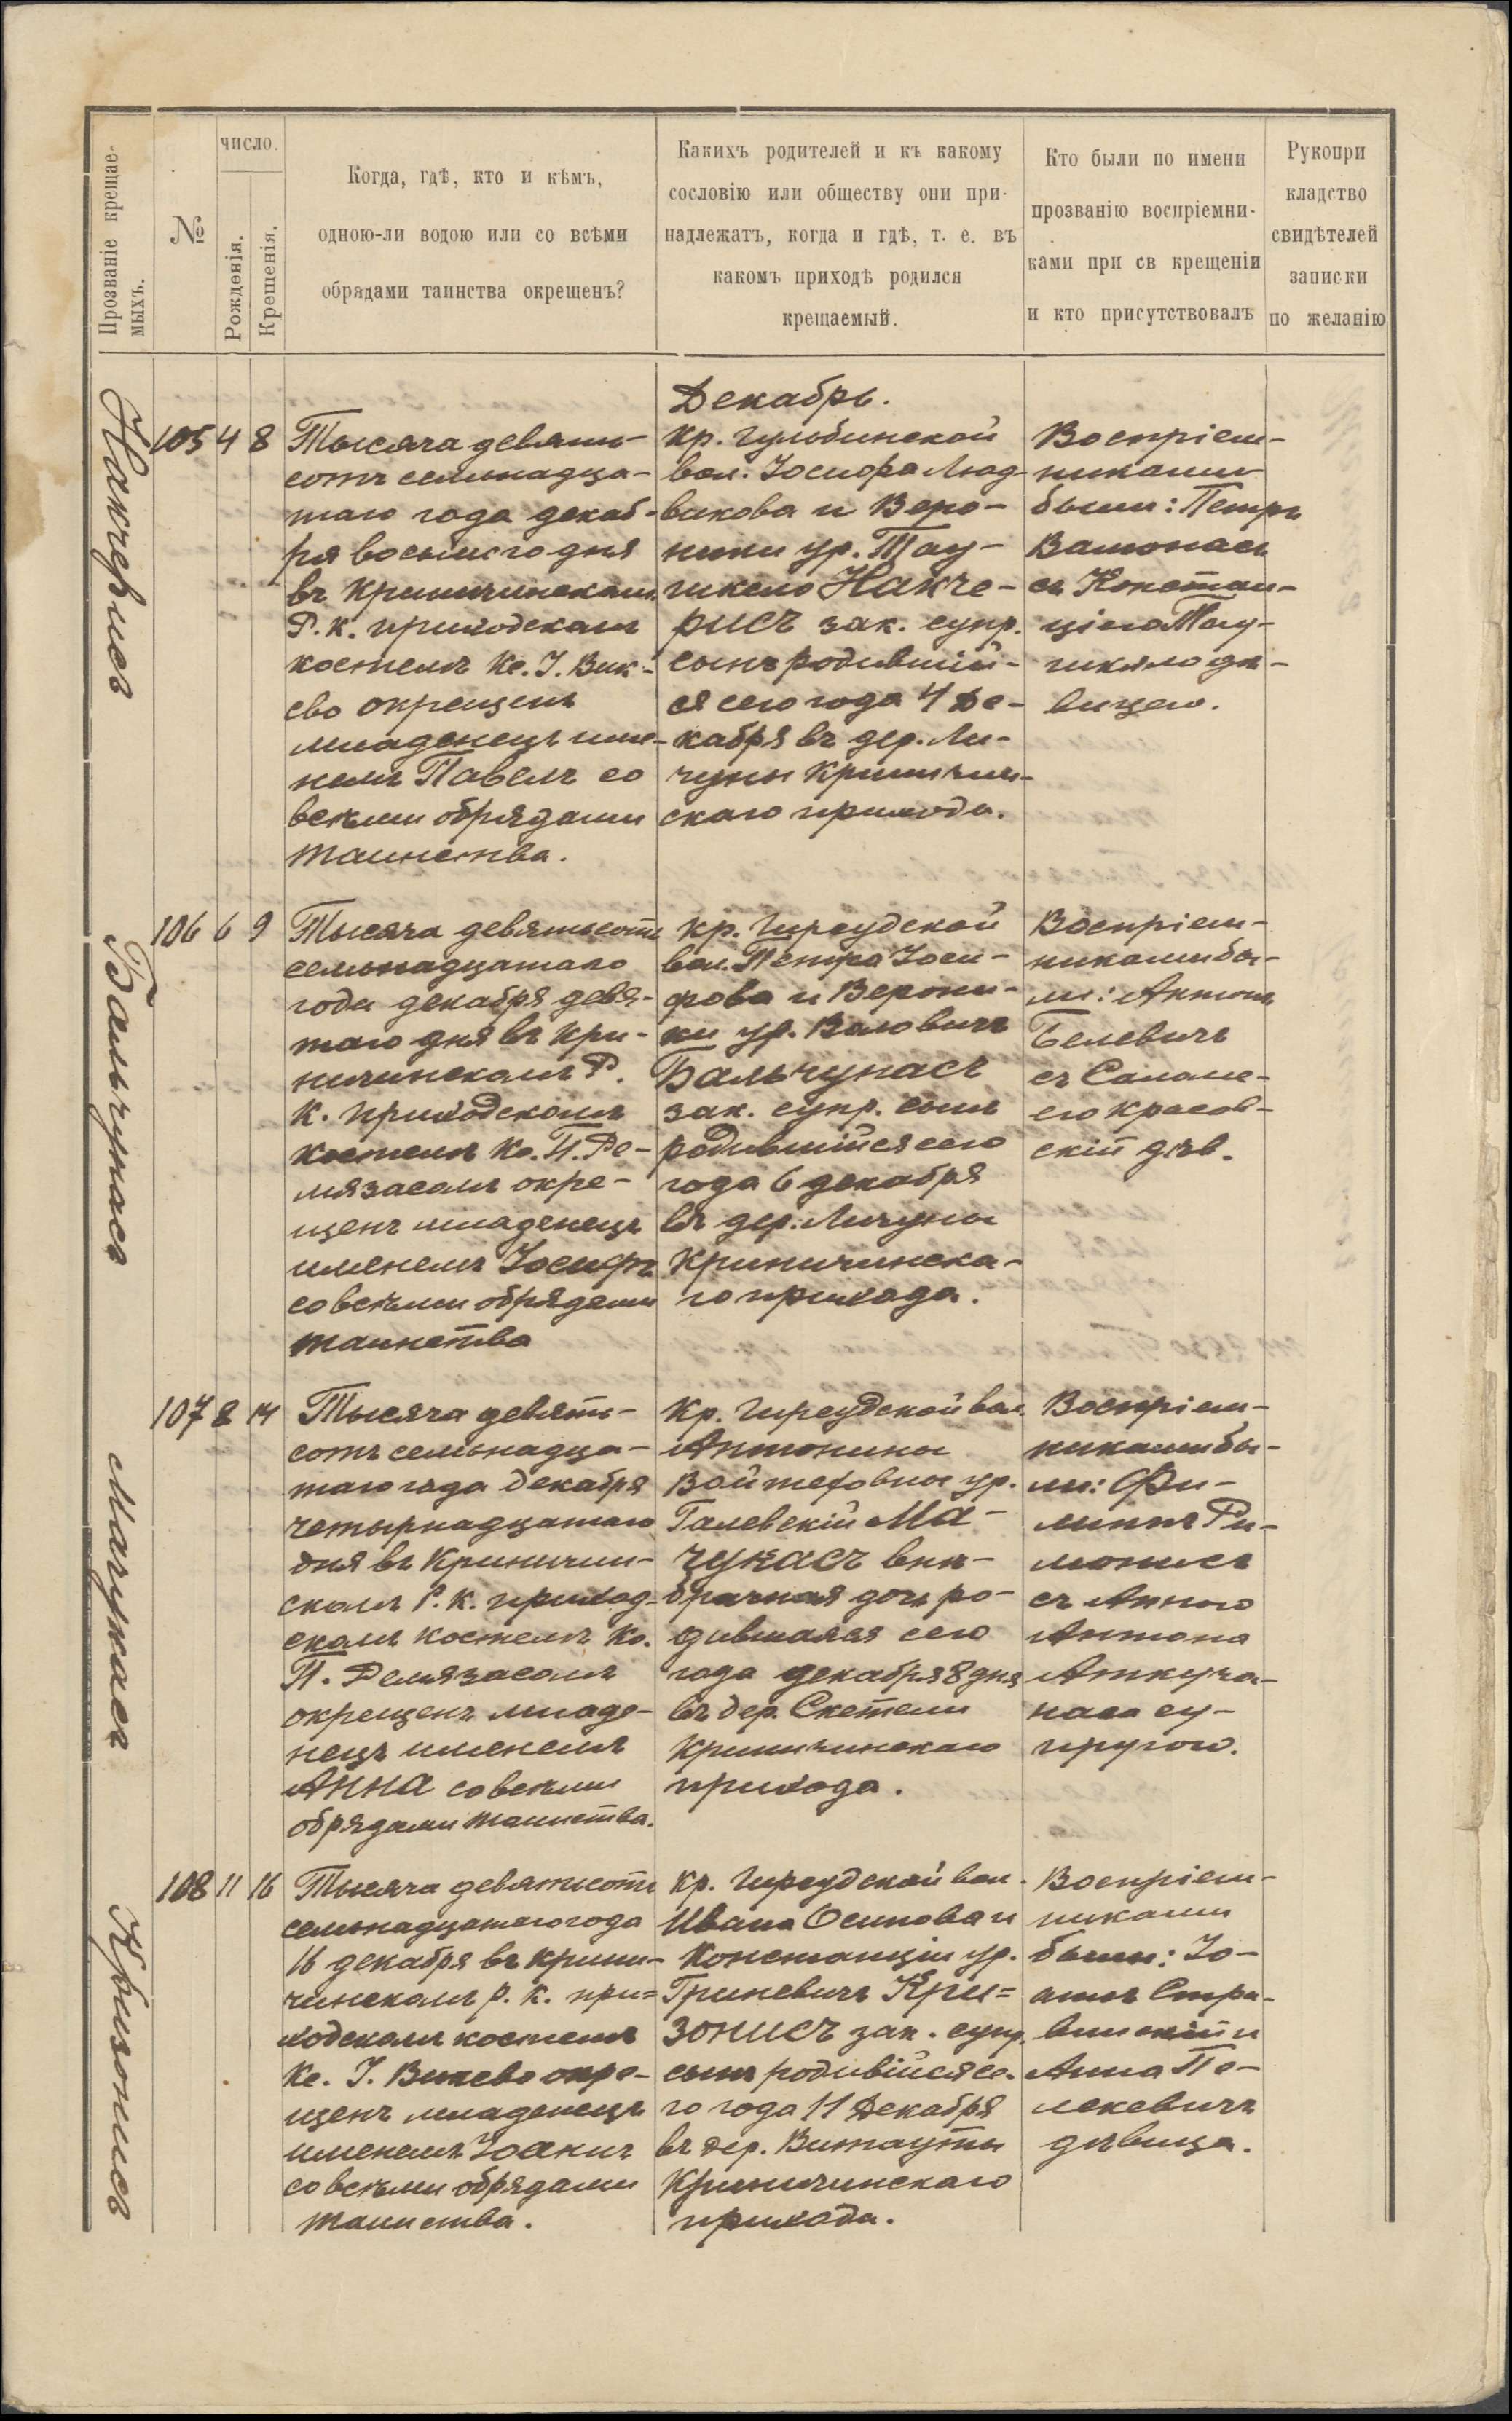 Прозваніе крещае-
мыхъ.
№
число.
Рожденія.
Крещенія.
Когда, гдѣ, кто и кѣмъ,
одною-ли водою или со всѣми
обрядами таинства окрещенъ?
Какихъ родителей и къ какому
сословію или обществу они при-
надлежатъ, когда и гдѣ, т. е. въ
какомъ приходѣ родился
крещаемый.
Кто были по имени
прозванію воспріемни-
ками при св крещеніи
и кто присутствовалъ
Рукопри
кладство
свидѣтелей
записки
по желанію
Декабрь.
Накчерисъ
105 4 8
Тысяча девять-
сотъ семьнадца-
таго года декаб-
ря восьмого дня
въ Криничинскомъ
Р. к. приходскомъ
костелѣ Кс. І. Вик-
сво окрещенъ
младенецъ име-
немъ Павелъ со
всѣми обрядами
таинства.
Кр. Гульбинской
вол. Іосифа Люд-
викова и Веро-
ники ур. Тау-
чикело Накче-
рисъ зак. супр.
сынъ родившій-
ся сего года 4 Де-
кабря въ дер. Ли-
чуны Криничин-
скаго прихода.
Воспріем-
никами
были: Петръ
Вамонасъ
съ Констан-
ціею Тау-
чикяло дѣ-
вицею.
Бальчунасъ
106 6 9
Тысяча девятьсотъ
семьнадцатаго
года декабря девя-
таго дня въ Кри-
ничинскомъ Р.
К. приходскомъ
костелѣ Кс. П. Ре-
мязасомъ окре-
щенъ младенецъ
именемъ Іосифъ
со всѣми обрядами
таинства
Кр. Гиреудской
вол. Петра Іоси-
фова и Верони-
ки ур. Валовичъ
Бальчунасъ
зак. супр. сынъ
родившійся сего
года 6 декабря
въ дер. Личуны
Криничинска-
го прихода.
Воспріем-
никами бы-
ли: Антонъ
Белевичъ
съ Саломе-
ею Красов-
скій дѣв.
Мачукасъ
107 8 14
Тысяча девять-
сотъ семьнадца-
таго года Декабря
четырнадцатаго
дня въ Криничин-
скомъ Р. К. приход-
скомъ костелѣ Кс.
П. Ремязасомъ
окрещенъ младе-
нецъ именемъ
Анна со всѣми
обрядами таинства.
Кр. Гиреудской вол.
Антонины
Войтеховны ур.
Галевскій Ма-
чукасъ внѣ-
брачная дочь ро-
дившаяся сего
года декабря 8 дня
въ дер. Скетели
Криничинскаго
прихода.
Воспріем-
никами бы-
ли: Фи-
липпъ Ри-
монисъ
съ Анною
Антона
Аткуча-
наса су-
пругою.
Кризонисъ
108 11 16
Тысяча девятьсотъ
семьнадцатаго года
16 декабря въ Крини-
чинскомъ р. к. при=
ходскомъ костелѣ
Кс. І. Виксво окре-
щенъ младенецъ
именемъ Іоакимъ
со всѣми обрядами
таинства.
Кр. Гиреудской вол.
Ивана Осипова и
Констанціи ур.
Гриневичъ Кри=
зонисъ зак. супр.
сынъ родившійся се-
го года 11 Декабря
въ дер. Витауты
Криничинскаго
прихода.
Воспріем-
никами
были: Іо-
аннъ Стра-
винскій и
Анна Пе-
лекевичъ
дѣвица.